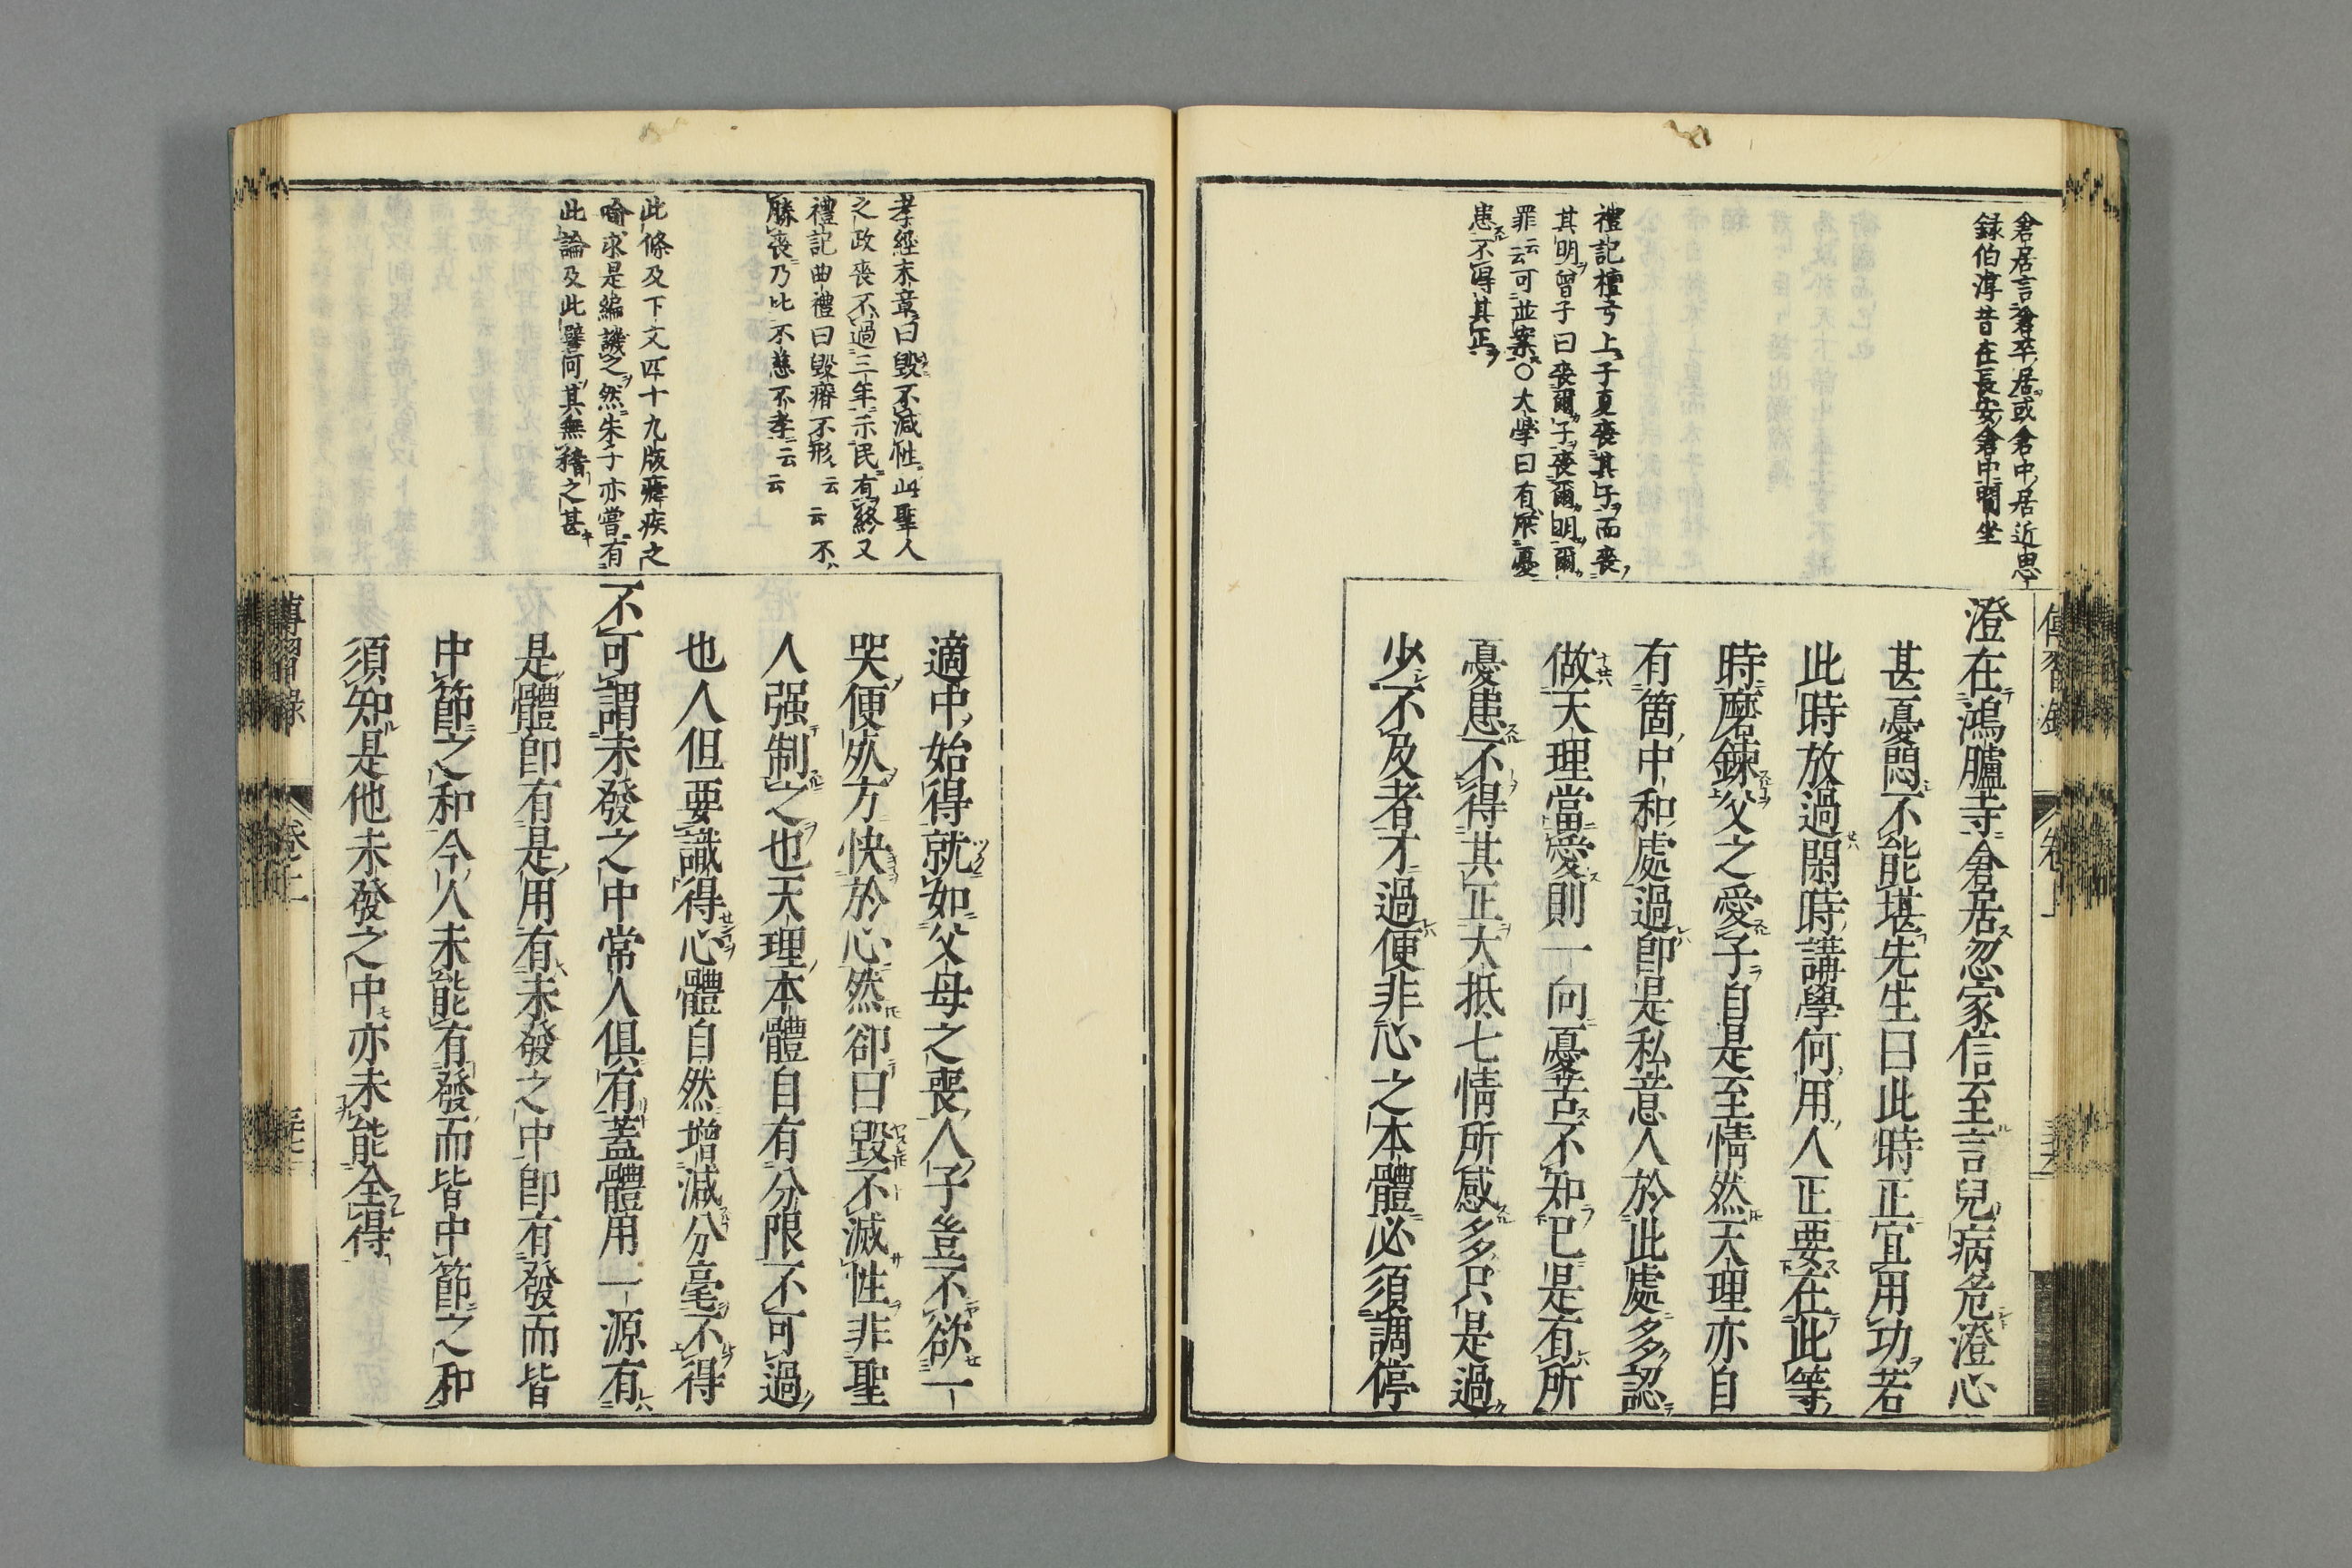 倉居言倉卒居或倉中居近思
録伯淳昔在長安倉中間坐
禮記檀弓上子夏喪其子而喪
其明曾子曰喪爾子喪爾明爾
罪云云可並案○大學曰有所憂
患不得其正
澄在鴻臚寺倉居忽家信至言兒病危澄心
甚憂悶不能堪先生曰此時正宜用功若
此時放過閑時講學何用人正要在此等
時磨鍊父之愛子自是至情然天理亦自
有箇中和處過即是私意人於此處多認
做天理當愛則一向憂苦不知已是有所
憂患不得其正大抵七情所感多只是過
少不及者才過便非心之本體必須調停
孝經末章曰毀不滅性此聖人
之政喪不過三年示民有終又
禮記曲禮曰毀瘠不形云云不
勝喪乃比不慈不孝云云
此條及下文四十九版瘧疾之
喻求是編譏之然朱子亦嘗有
此論及此譬何其無稽之甚
適中始得就如父母之喪人子豈不欲一
哭便死方快於心然卻曰毀不滅性非聖
人强制之也天理本體自有分限不可過
也人但要識得心體自然增減分毫不得
不可謂未發之中常人俱有蓋體用一源有
是體即有是用有未發之中即有發而皆
中節之和今人未能有發而皆中節之和
須知是他未發之中亦未能全得
傳習録 卷上